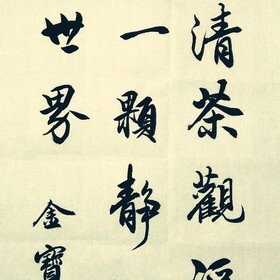 清茶觀
一顆靜
世界
金寶